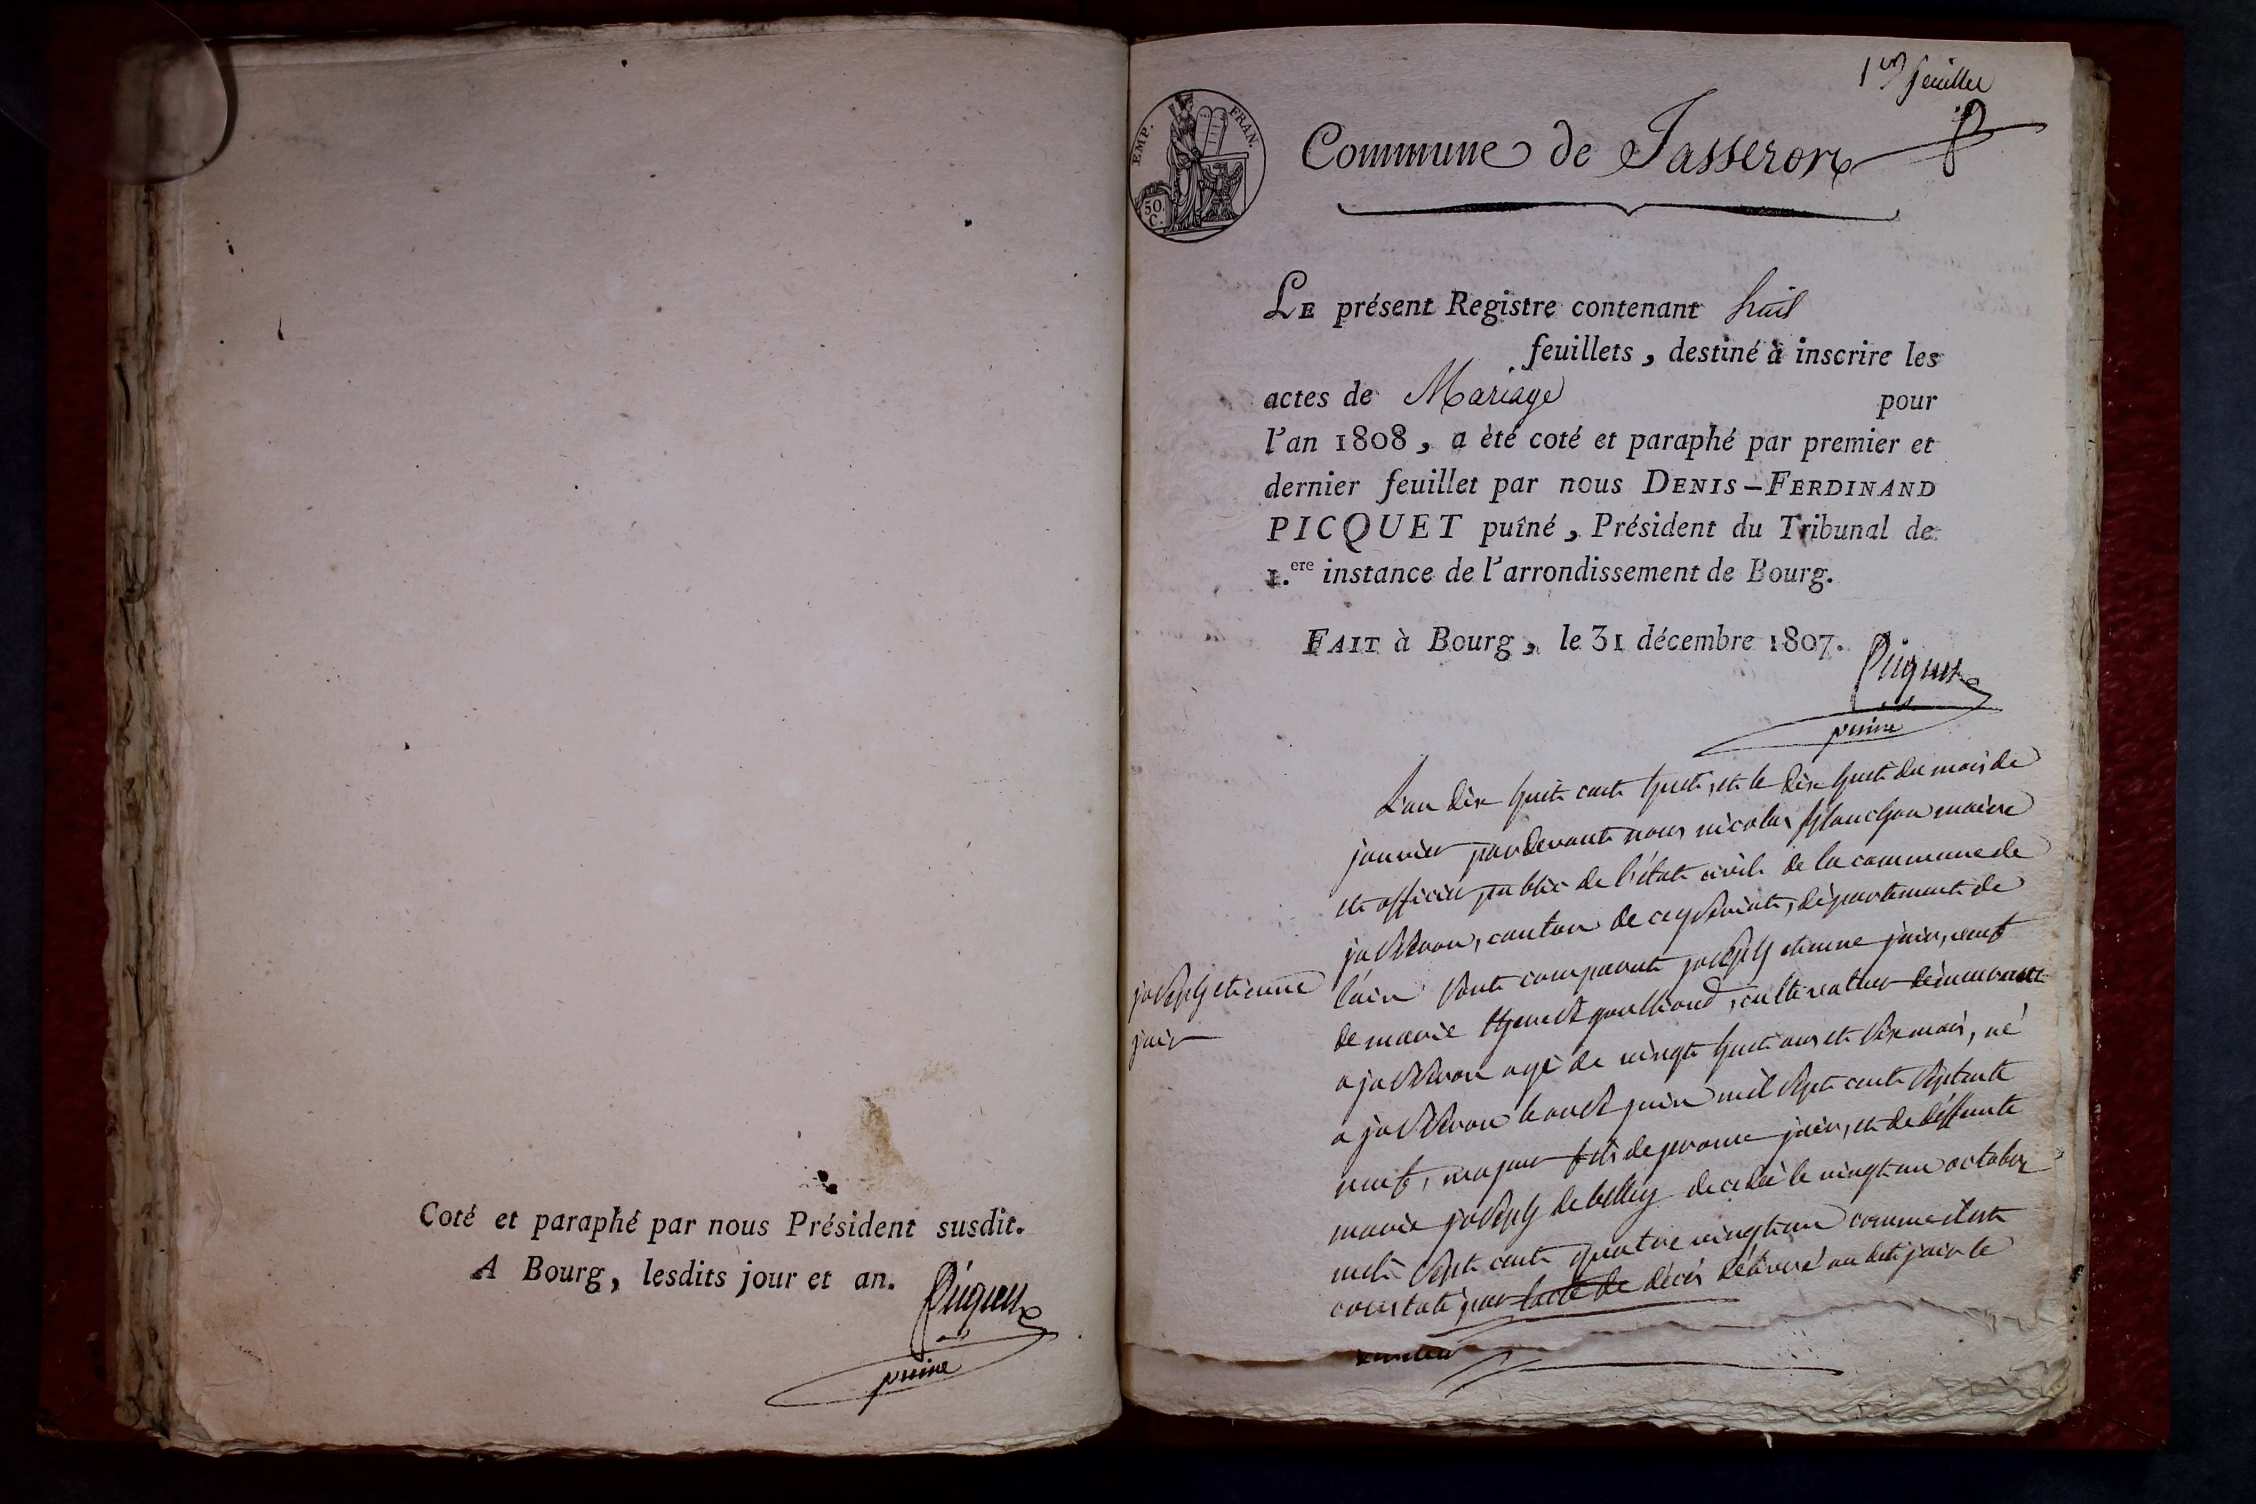 Coté et paraphé par nous Président susdit.
A Bourg, lesdits jour et an.
Picquet
puiné
1er feuillet
EMP. FRAN.
50. C.
Commune de Jasseron
LE présent Registre contenant huit
feuillets, destiné à inscrire les
actes de Mariage pour
l'an 1808, a èté coté et paraphé par premier et
dernier feuillet par nous DENIS-FERDINAND
PICQUET puîné, Président du Tribunal de
1.ere instance de l'arrondissement de Bourg.
FAIT à Bourg, le 31 décembre 1807.
Picquet
puiné
L'an dix huit cent huit, et le dix huit du mois de
janvier pardevant nous nicolas planchon maire
et officier public de l'état civil de la commune de
jasseron, canton de ceyseriat, département de
joseph etienne
l'ain sont comparut joseph etienne jair, veuf
jair
de marie cultivateur demeurant
a jasseron agé de vingt huit ans et six mois, né
a jasseron le onze juin mil sept cent septante
neuf, majeur fils de jerome jair, et de deffunte
marie joseph de belley decedée le vingt un octobre
mil sept cent quatre vingt un comme il est
constaté par l'acte de décés délivré au dit jair le